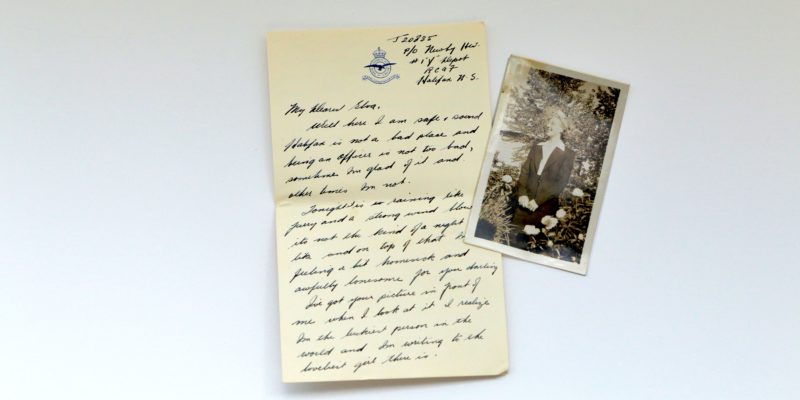 J20835
P/O
Depot
RCAF
Halifax N.S.
My Dearest Elva,
Well here I am safe & sound
Halifax is not a bad place and
being an officer is not too bad,
sometimes I'm glad of it and
other times I'm not.
Tonight it is raining like
fury and a strong wind
its not the kind of a night
like and on top of that
feeling a bit homesick and
awfully lonesome for you darling
I've got your picture in front of
me when I look at it I realize
I'm the luckiest person in the
world and I'm writing to the
loveliest girl there is.